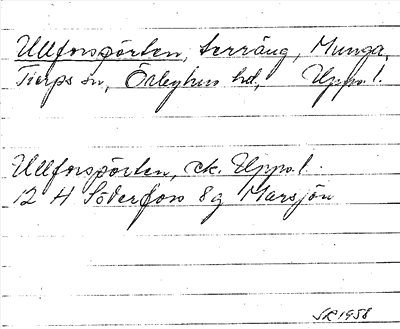 Ullforsporten, terräng, Munga,
Tierps sn, Örbyhus hd, Uppsa l.
Ullforsporten, ek. Uppsa l.
12 H Söderfors 8g Marsjön
SR 1958